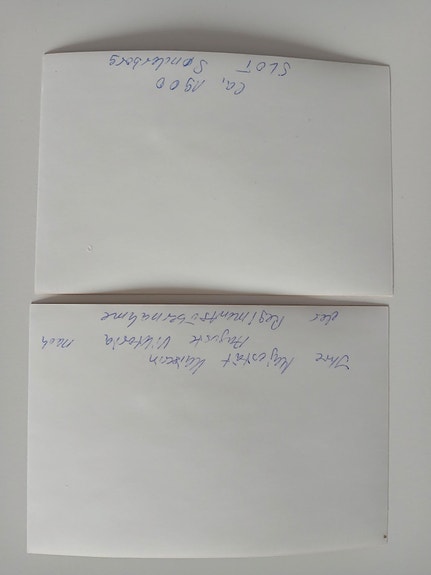 Ca, 1900
SLOT Sønderborg
Ihre Majestät Kaiserin
Auguste Viktoria nach
der Regimentsübernahme